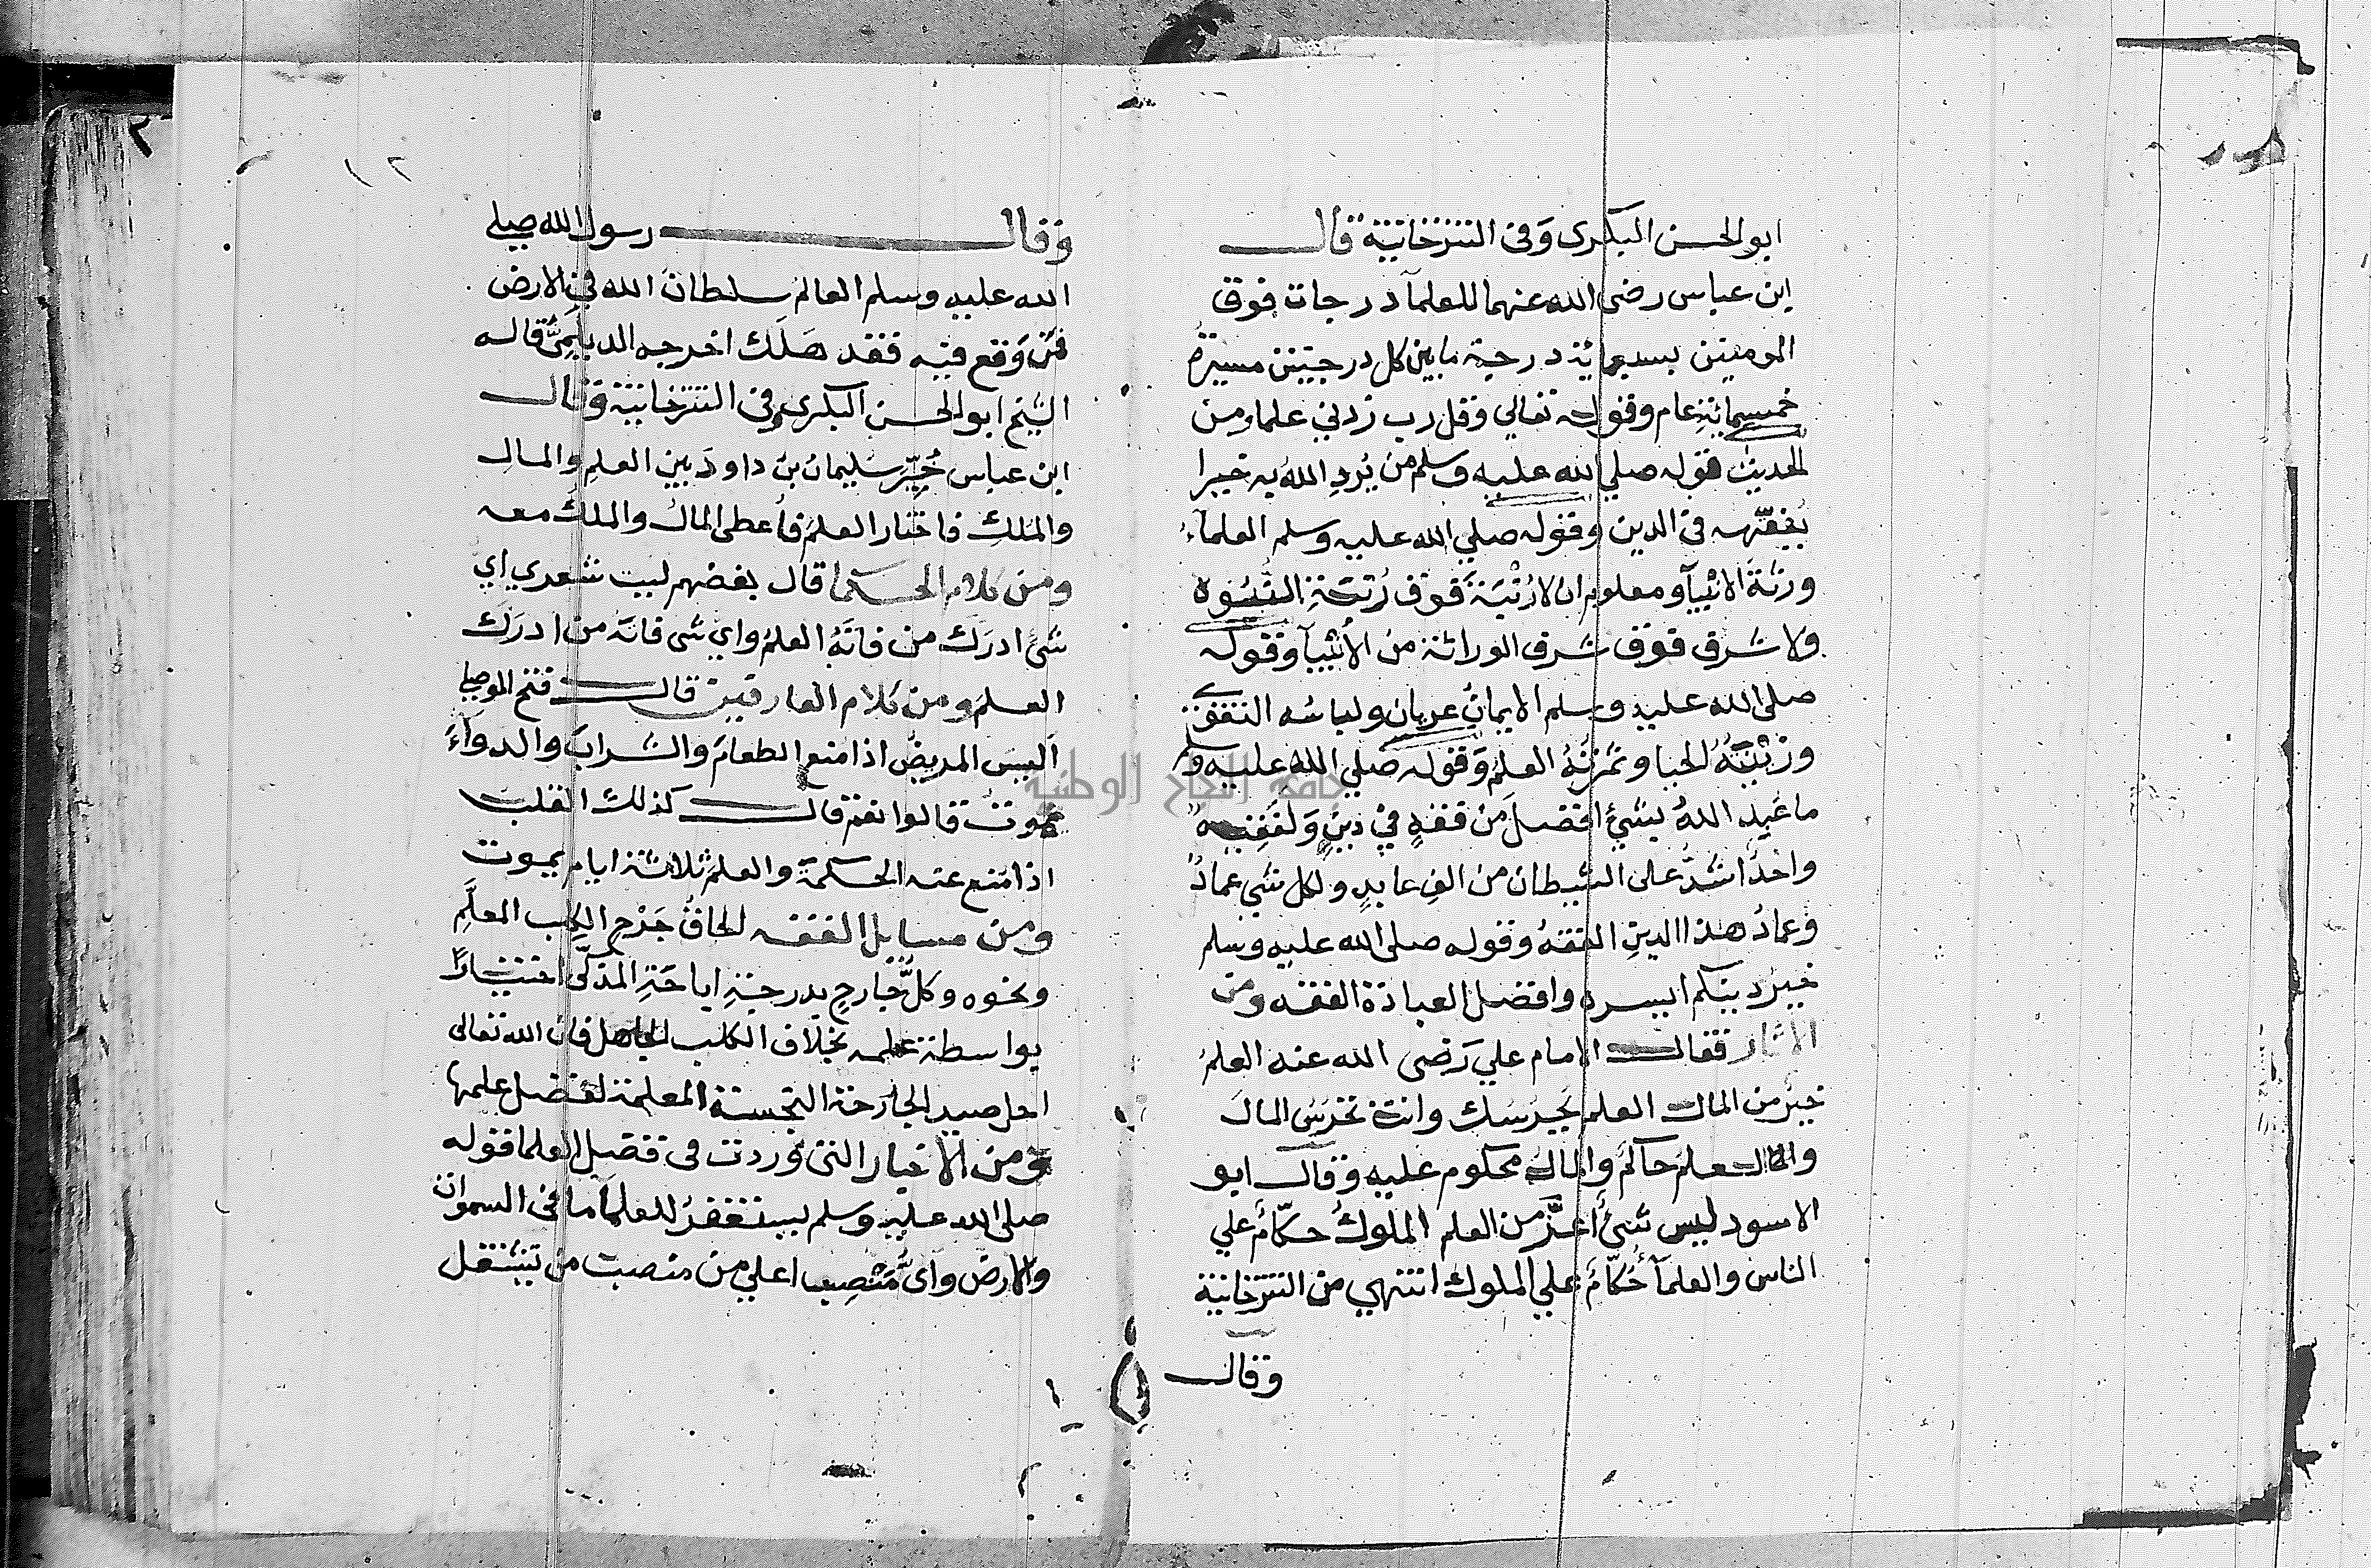 ابو الحسن البكرى وَفى التترخانية قال
ابن عباس رضى الله عنهما للعلمآ درجات فوق
المومنين بسبعماية درجة ما بين كل درجتين مسيرة
خمسماية عام وقوله تعالي وقل رب زدني علما ومن
الحديث قوله صلي الله عليه وسلم من يُردِ اللهُ به خيرا
يفقّهه فى الدين وقوله صلي الله عليه وسلم العلمآءُ
ورثة الانبيآ ومعلوم ان لا رُتْبَةَ فوق رُتبَةِ النُّبُوه
ولا شرف فوق شرف الوراثة من الأنبيآ وقوله
صلى الله عليه وسلم الايمانُ عريان ولباسُه التقوى
وزِيْنَتُهُ الحيا وثمرتُهُ العلمُ وَقوله صلي الله عليه وسلم
ما عُبِد اللهُ بشئٍ افضلَ مِنْ فقهٍ فيْ دِينٍ وَلفقيهٌ
واحدٌ اشدُّ على الشيطان من الفِ عابدٍ ولكل شي عمادٌ
وَعمادُ هذا الدينِ الفقهُ وقوله صلى الله عليه وسلم
خيرُ دينكم ايسره وافضل العبادة الفقه ومن
الاثار فقال الامام علي رَضى الله عنه العلمُ
خيرٌ من المال العلم يَحرسُك وانت تحرَسُ المالَ
والعلم حاكم والمالُ محكوم عليه وقال ابو
الاسود ليس شئٌ أعزَّ من العلم الملوكُ حكّامٌ علي
الناس والعلمآ حُكّامٌ علي الملوك انتهي من التترخانية
وقال
وَقال رسول الله صلى
الله عليه وسلم العالمُ سلطانُ الله في الارض
فمَنْ وَقع فيه فقد هَلَك اخرجه الديلمِيُّ قاله
الشيخ ابو الحسن البكرى وفى التترخانية وقال
ابن عباس خُيّرِ سليمانُ بنُ داودَ بين العلمِ والمالِ
والمُلكِ فاختار العلمَ فأعطى المالَ والملكَ معه
ومن كلام الحكما قال بعضهم ليت شعري اي
شئٍ ادرَكَ من فاتَهُ العلمُ واي شى فاتَهُ من ادرَكَ
العلمَ ومن كلام العارفين قال فتح الموصلي
اليس المريضُ اذا منع الطعامَ والشرابَ والدوآءَ
يموتُ قالوا نعم قال كذلك القلب
اذا مُنع عنه الحكمة والعلم ثلاثة ايام يموت
ومن مسايل الفقه الحاقُ جَرْحِ الكلب المعلَّمِ
ونحوه وكلُّ جارحٍ بدرجةِ اباحَةِ المذكّى اختيارًا
بواسطة علمه بخلاف الكلب الجاهل فان الله تعالى
احل صيد الجارحة النجسة المعلمة لفضل علمها
ومن الاخبار التى وَردت فى فضل العلما قوله
صلى الله عليه وسلم يستغفرُ للعلمآ ما فى السموات
والارض وايُّ مَنْصِبٍ اعلي من منصب من تشتغل
جامعة النجاح الوطنية
١٢